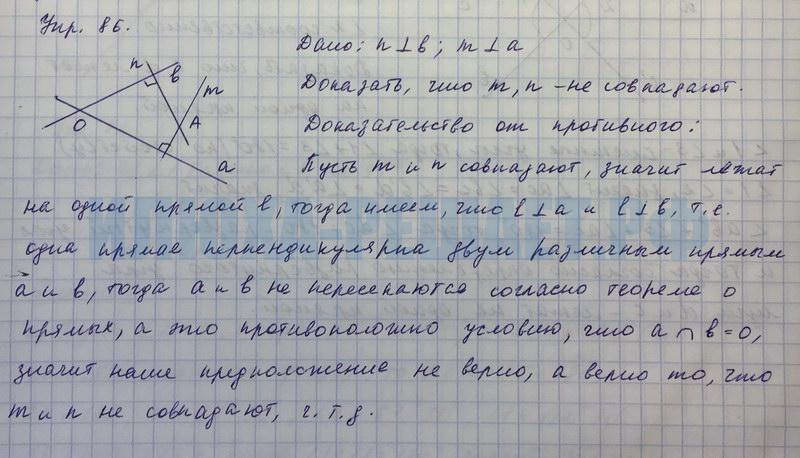 Упр. 86.
Дано: n ⊥ b ; m ⊥ a
n b m
Доказать, что m, n - не совпадают.
O A
Доказательство от противного:
a
Пусть m и n совпадают, значит лежат
на одной прямой ℓ, тогда имеем, что ℓ ⊥ a и ℓ ⊥ b, т.е.
одна прямая перпендикулярна двум различным прямым
a и b, тогда a и b не пересекаются согласно теореме о
прямых, а это противоположно условию, что a ∩ b = O,
значит наше предположение не верно, а верно то, что
m и n не совпадают, ч. т. д.